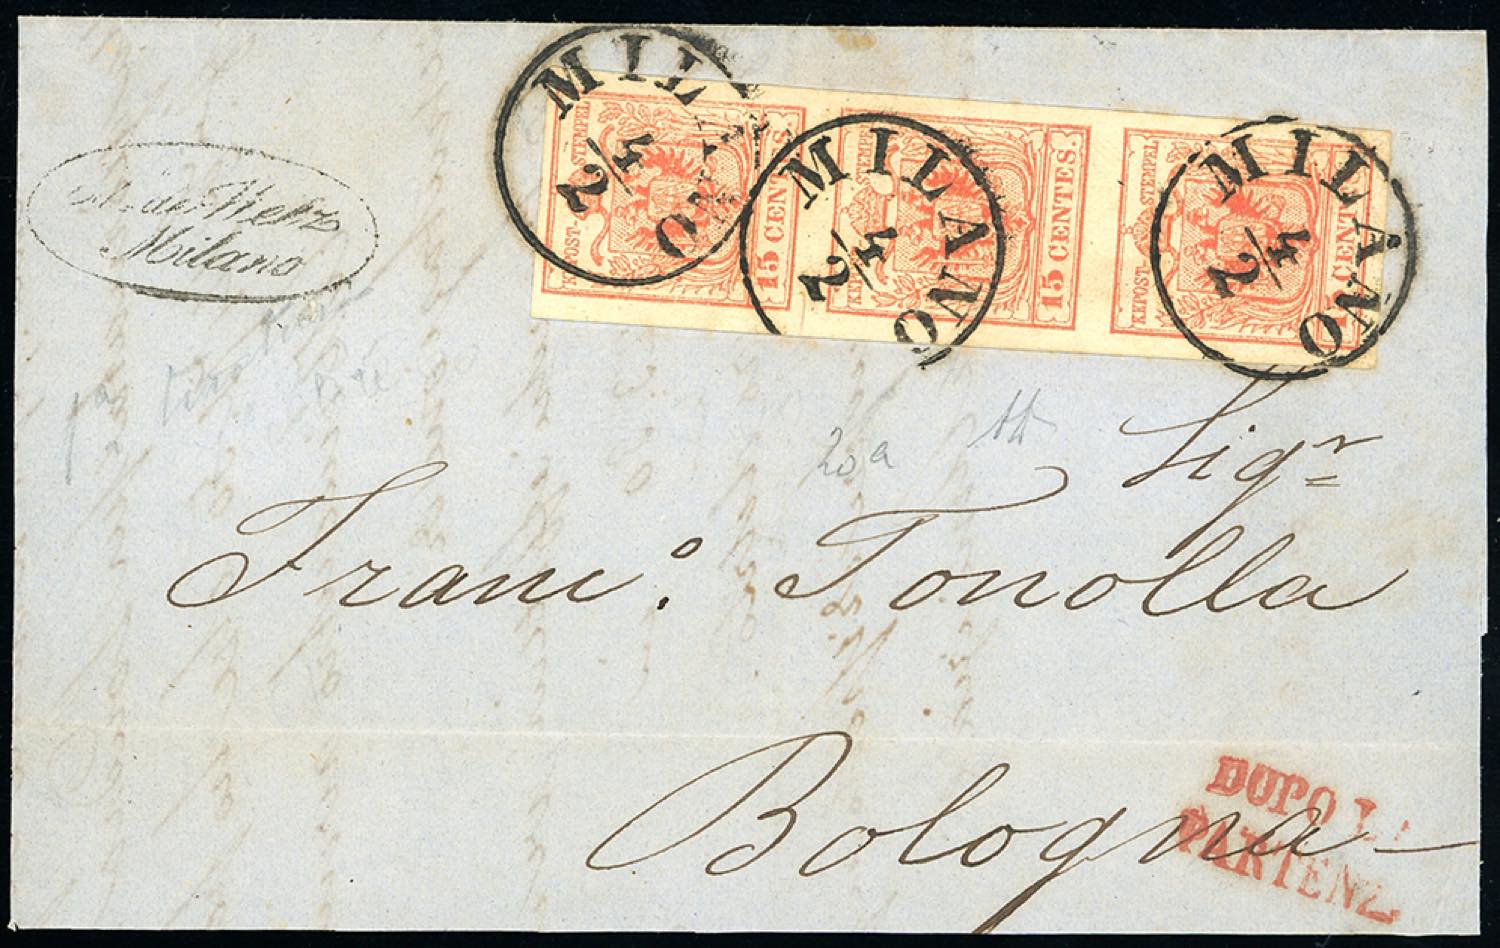 MILANO
4/2
MILANO
4/2
MILANO
4/2
KKPOST-STEMPEL
15 CENTES.
KKPOST-STEMPEL
15 CENTES.
KKPOST-STEMPEL
CENTES
Milano
20a
Sigr
Franc.o Tonolla
Bologna
DOPO LA
PARTENZ